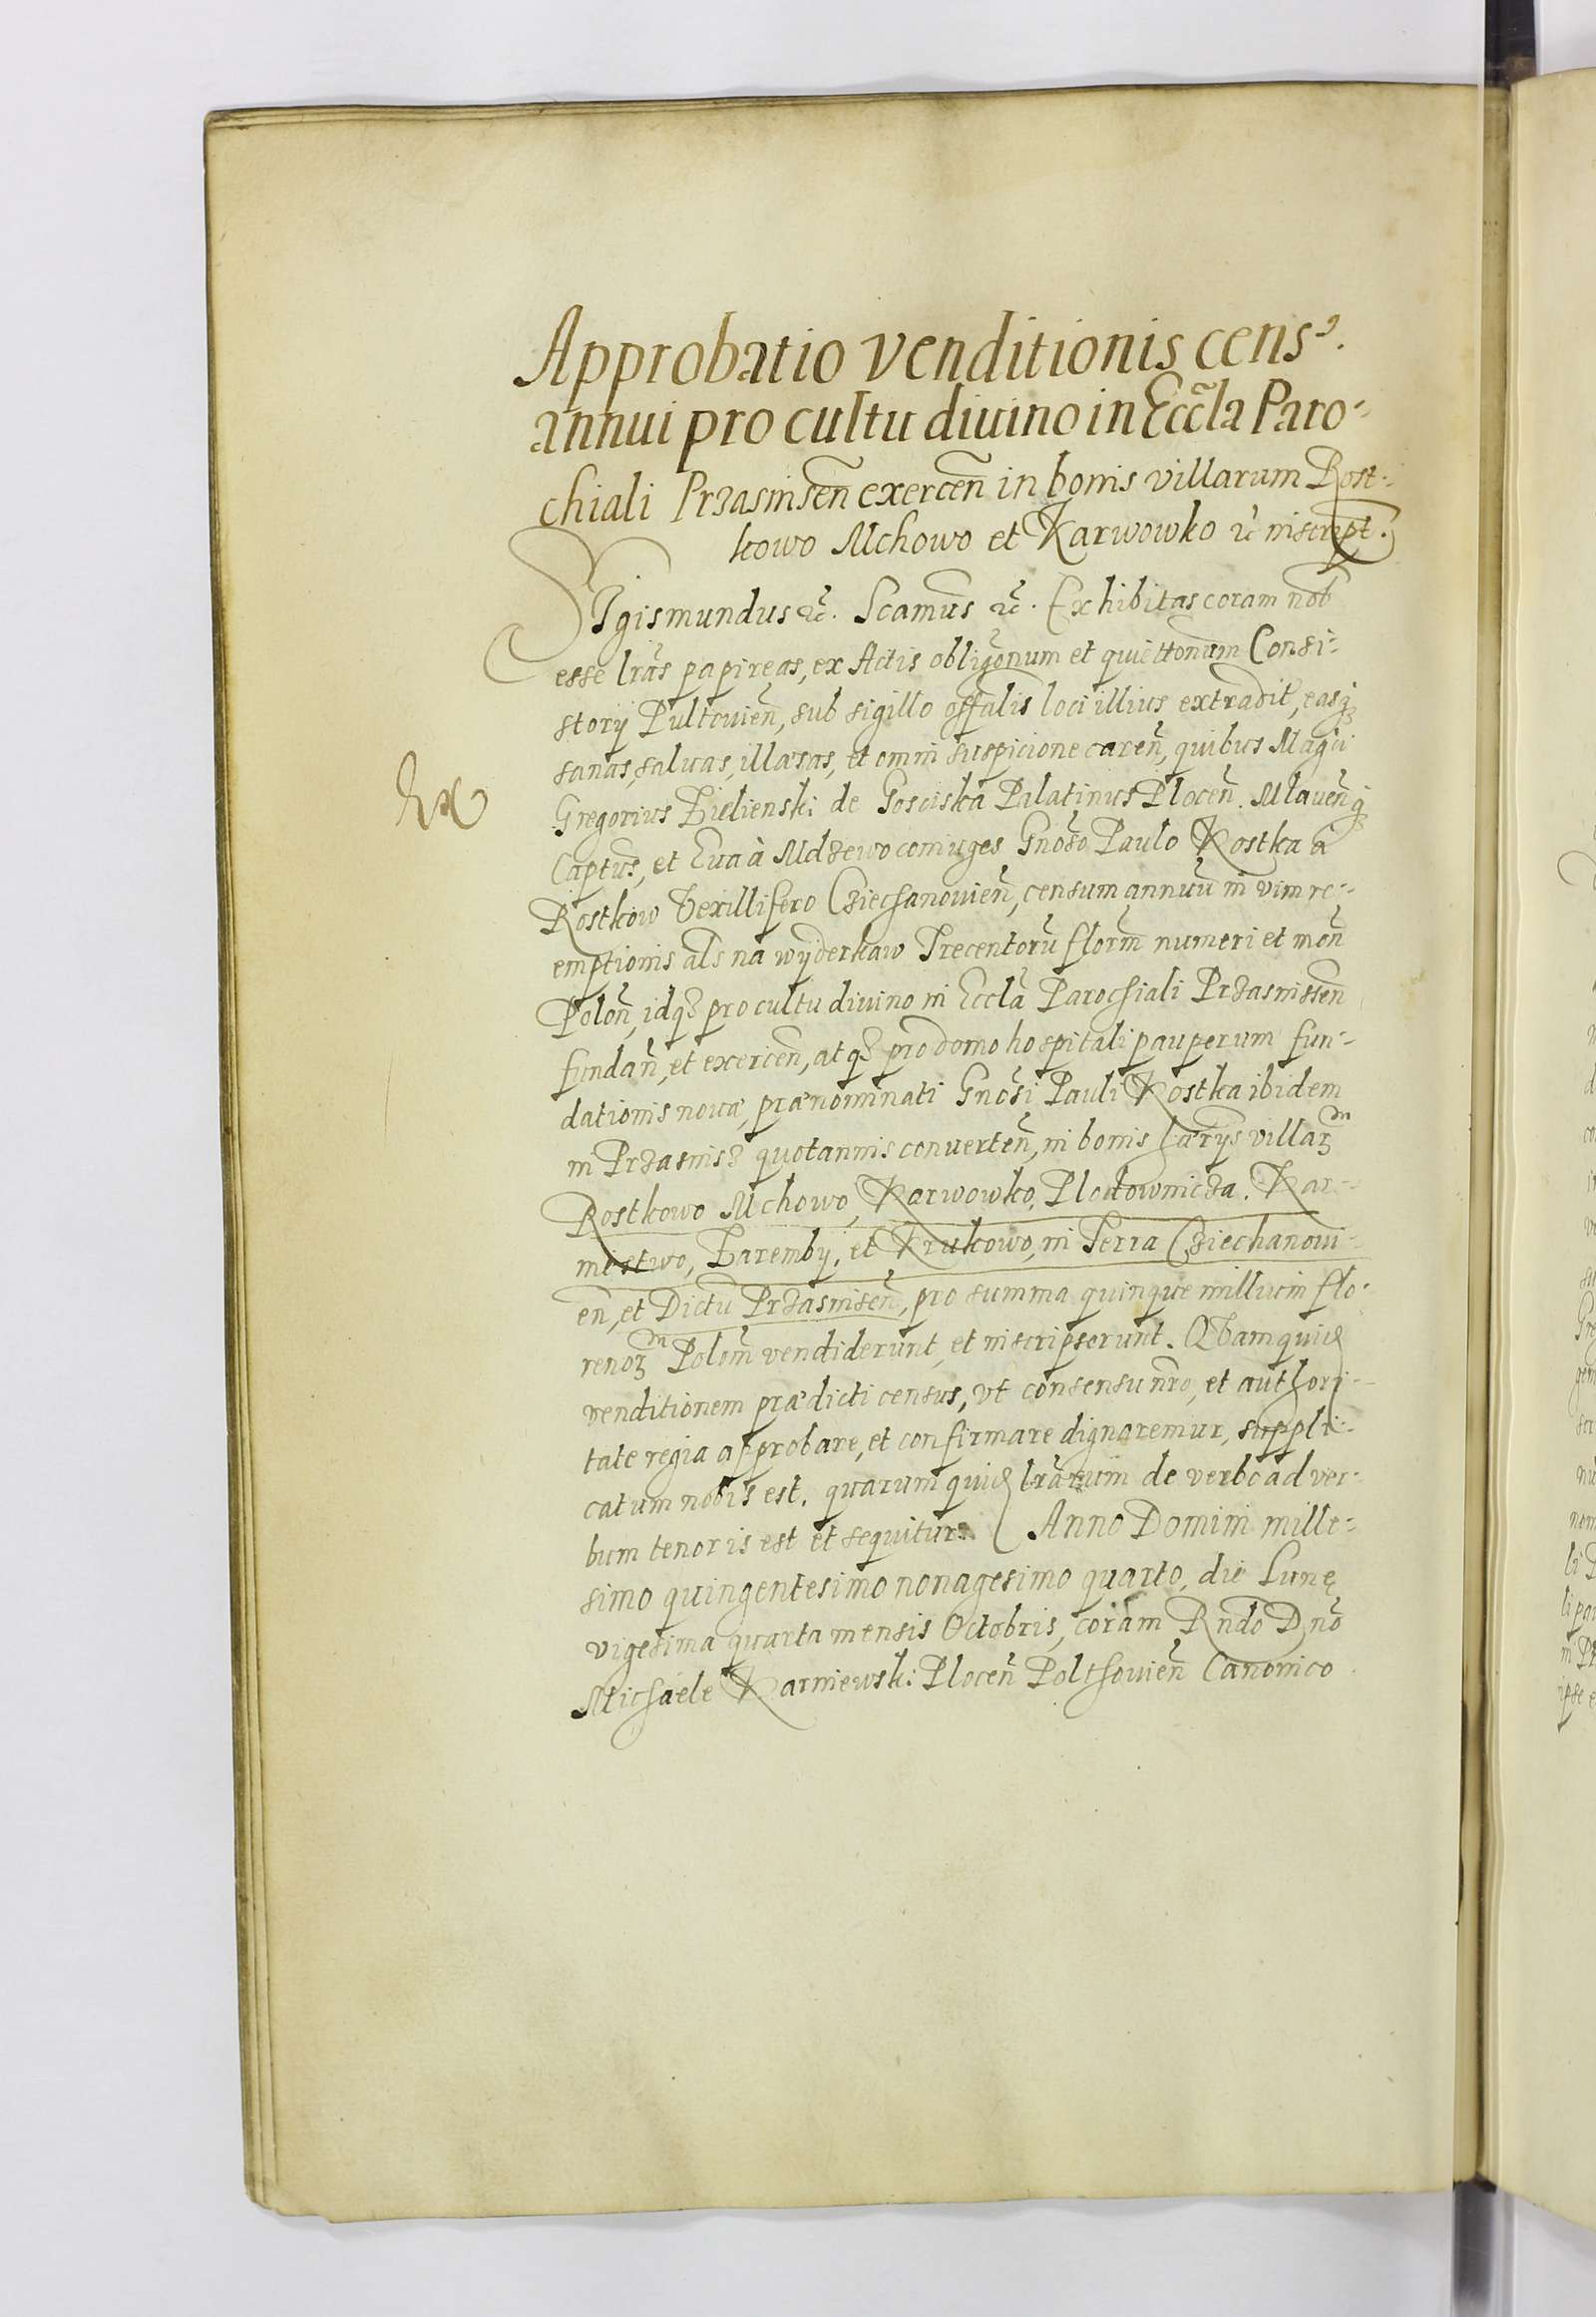 Approbatio venditionis cens9.
annui pro cultu divino in Eccla Paro-
chiali Przasnisen exercen in bonis villarum Rost-
kowo Mchowo et Karwowko &c inscript.
SIgismundus &c. Scamus &c. Exhibitas coram nob
esse lras papireas, ex Actis obligonum et quiettonum Consi-
storij Pultouien, sub sigillo offalis loci illius extradit, easq3
sanas, saluas, illæsas, et omni suspicione caren, quibus Magci
Ex
Gregorius Zielienski de Gosciska Palatinus Plocen. Mlauenq3
Captus, et Eua à Mdzewo coniuges Gnoso Paulo Kostka à
Rostkow Vexillifero Cziechanouien, censum annuu in vim re-
emptionis als na wyderkaw Trecentoru florm numeri et mon
Polon, idq3 pro cultu diuino in Eccla Parochiali Przasnissen
fundan, et exercen, atq3 pro domo hospitali pauperum fun-
dationis nouæ, prænominati Gnosi Pauli Kostka ibidem
in Przasnis3 quotannis conuerten, in bonis hærijs villar3
Rostkowo Mchowo, Karwowko, Plodownicza. Kar-
mistwo, Zaremby, et Krukowo, in Terra Cziechanoui-
en, et Dictu Przasnisen, pro summa quinque millium flo-
reno3 Polom vendiderunt, et inscripserunt. Qvam quid
venditionem prædicti census, vt consensu nro, et authori-
tate regia approbare, et confirmare dignaremur, suppli-
catum nobis est. quarum quid lrarum de verbo ad ver-
bum tenor is est et sequitur. Anno Domini mille-
simo quingentesimo nonagesimo quarto, die Lunę
vigesima quarta mensis Octobris, coram Rndo Dno
Michaele Karniewski Plocen Polthouien Canonico